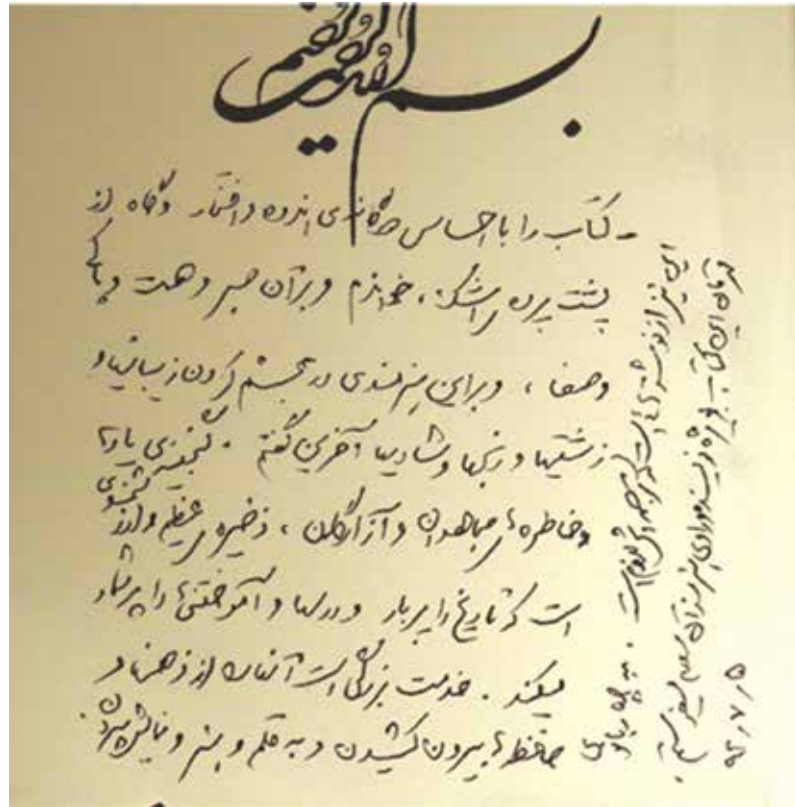 بسم الله الرحمن الرحیم
- کتاب را با احساس دوگانه‌ی اندوه و افتخار و گاه از
پشت پرده‌ی اشک، خواندم و بر آن صبر و همت و پاکی
و صفا، و بر این هنرمندی در مجسم کردن زیباییها و
زشتیها و رنجها و شادیها آفرین گفتم. گنجینه‌ی یادها
و خاطره‌های مجاهدان و آزادگان، ذخیره‌ی عظیم و ارزشمندی
است که تاریخ را پربار و درسها و آموختنی‌ها را پرشمار
میکند. خدمت بزرگی است آنها را از ذهنها و
حافظه‌ها بیرون کشیدن و به قلم و هنر و نمایش سپردن.
این نیز از نوشته‌هائی است که ترجمه‌اش لازم است. به چهار بانوی
قهرمان این کتاب بویژه نویسنده و راوی هنرمند آن سلام میفرستم
۹۲/۷/۵